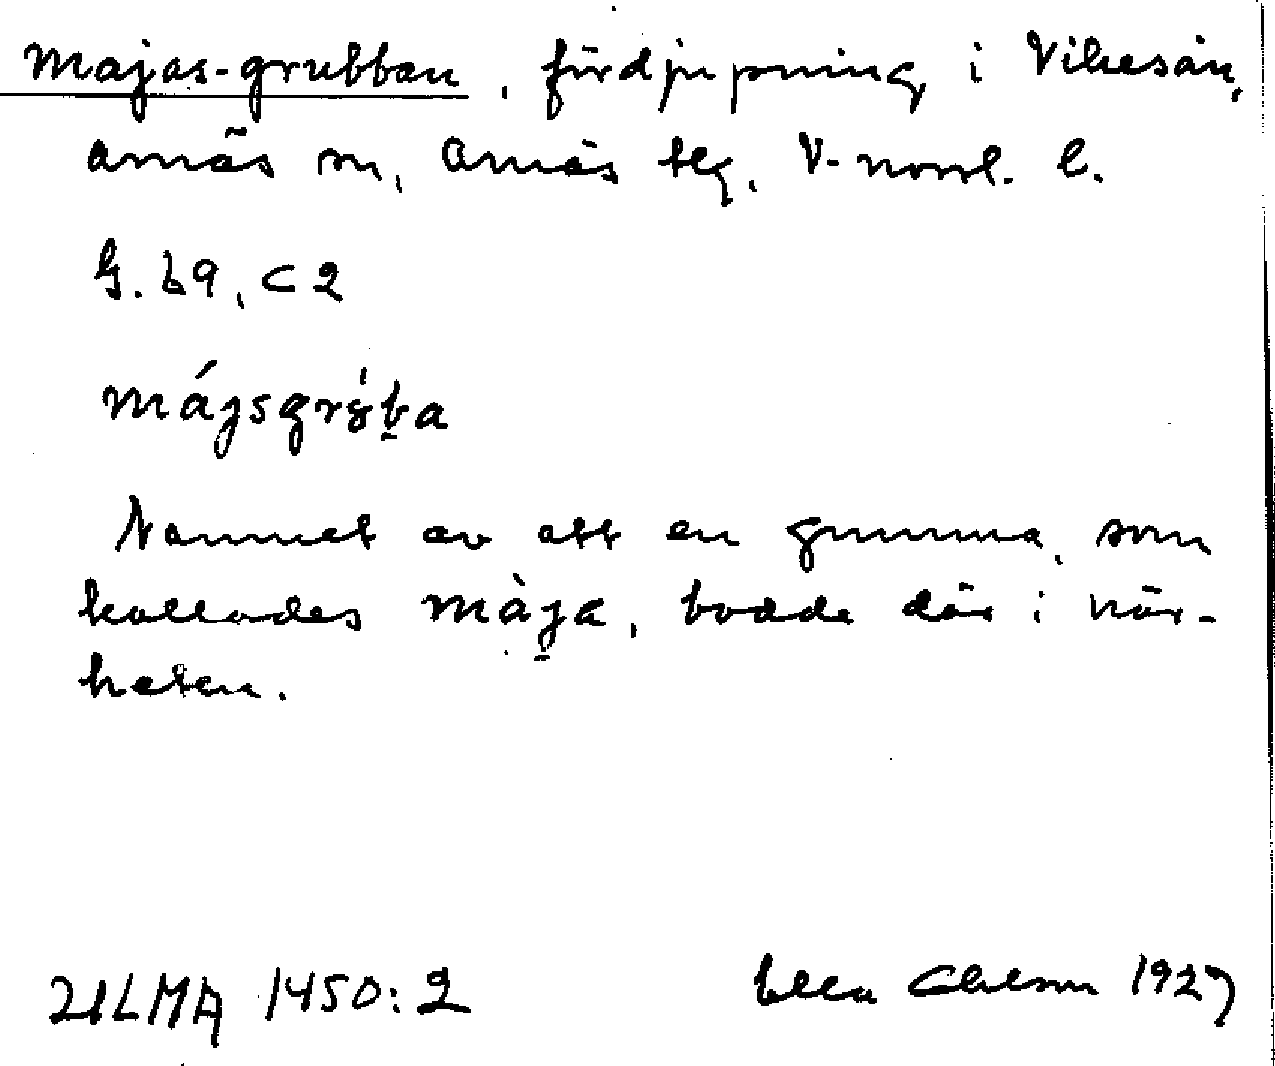 Majas-grubban, fördjupning i Vikesån,
Amnäs sn, Amnäs tlg, V-norrl. l.
G. b9, c2
májsgrúba
Namnet av att en gumma, som
kallades màja, bodde där i när-
heten.
ULMA 1450:2 Ella Ohlson 1927